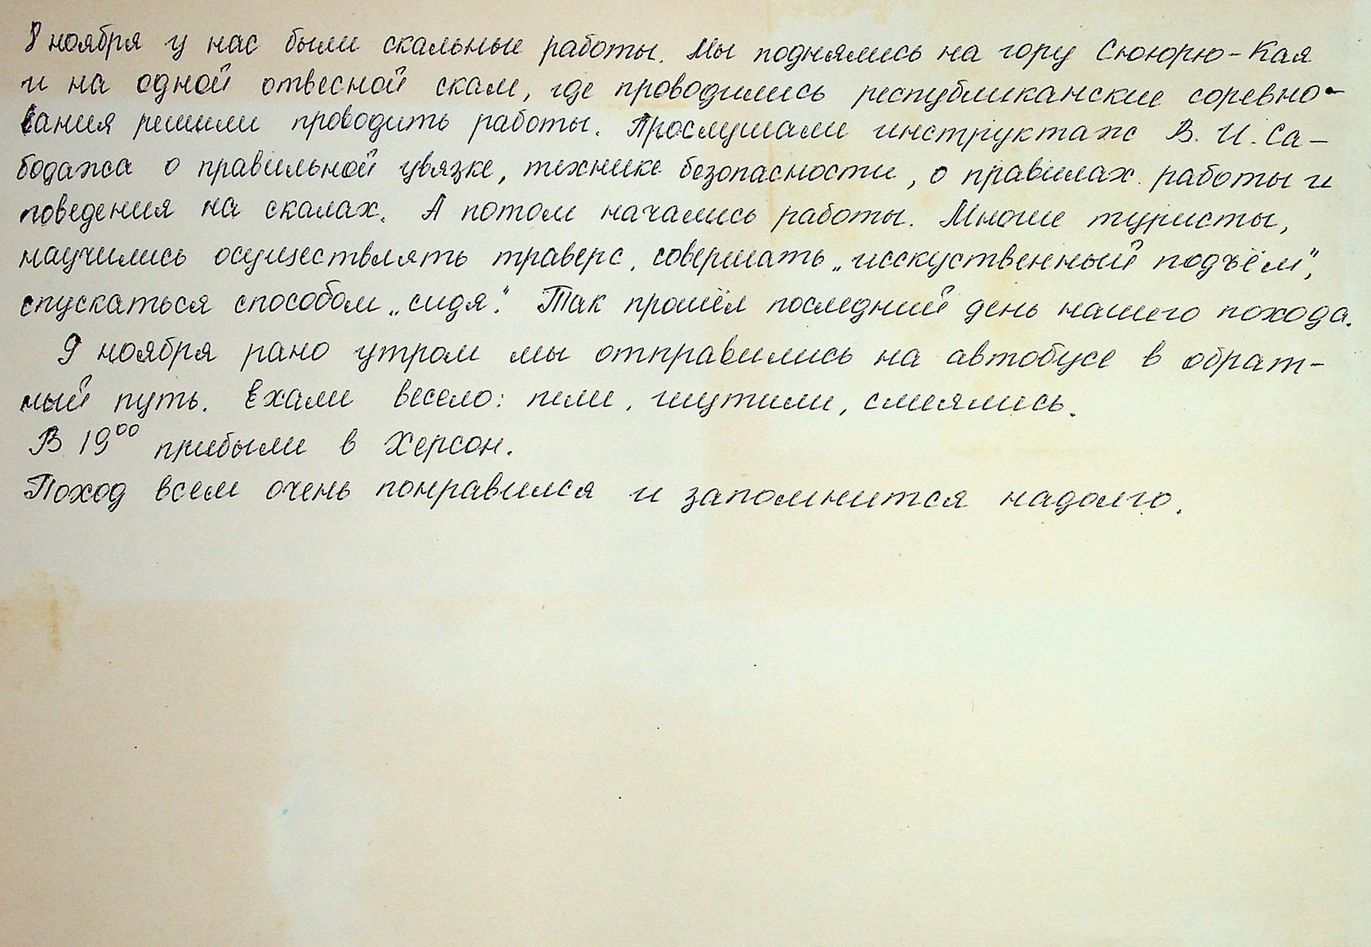 8 ноября у нас были скальные работы. Мы поднялись на гору Сююрю-Кая
и на одной отвесной скале, где проводились республиканские соревно-
вания решили проводить работы. Прослушали инструктаж В. И. Са-
бодажа о правильной увязке, технике безопасности, о правилах работы и
поведения на скалах. А потом начались работы. Многие туристы,
научились осуществлять траверс, совершать „исскуственный подъём",
спускаться способом „сидя". Так прошёл последний день нашего похода.
9 ноября рано утром мы отправились на автобусе в обрат-
ный путь. Ехали весело: пели, шутили, смеялись.
В 19⁰⁰ прибыли в Херсон.
Поход всем очень понравился и запомнится надолго.